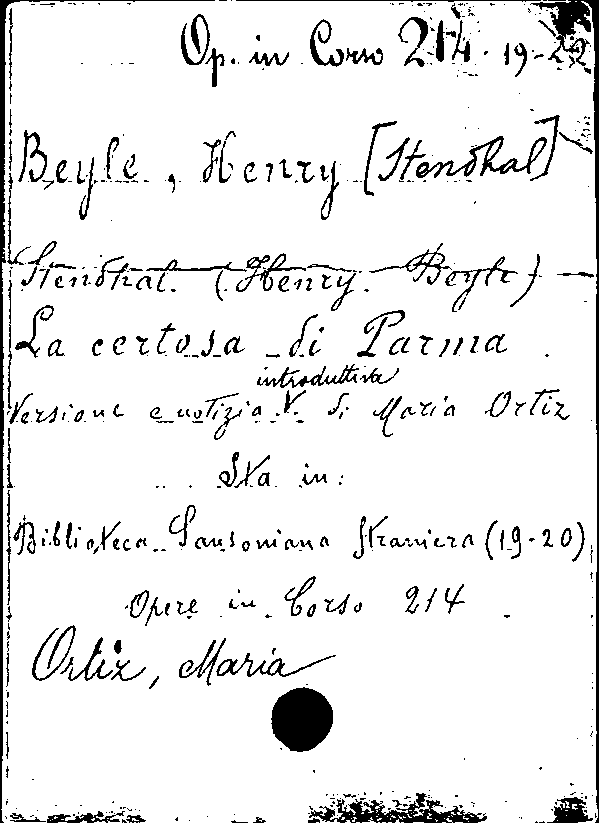 Op. in Corso 214. 19-22
Beyle, Henry [Stendhal]
Stendhal. (Henry. Beyle)
La certosa di Parma.
introduttiva
Versione e notizia V. di Maria Ortiz
Sta in:
Biblioteca Sansoniana Straniera (19-20)
Opere in Corso 214.
Ortiz, Maria